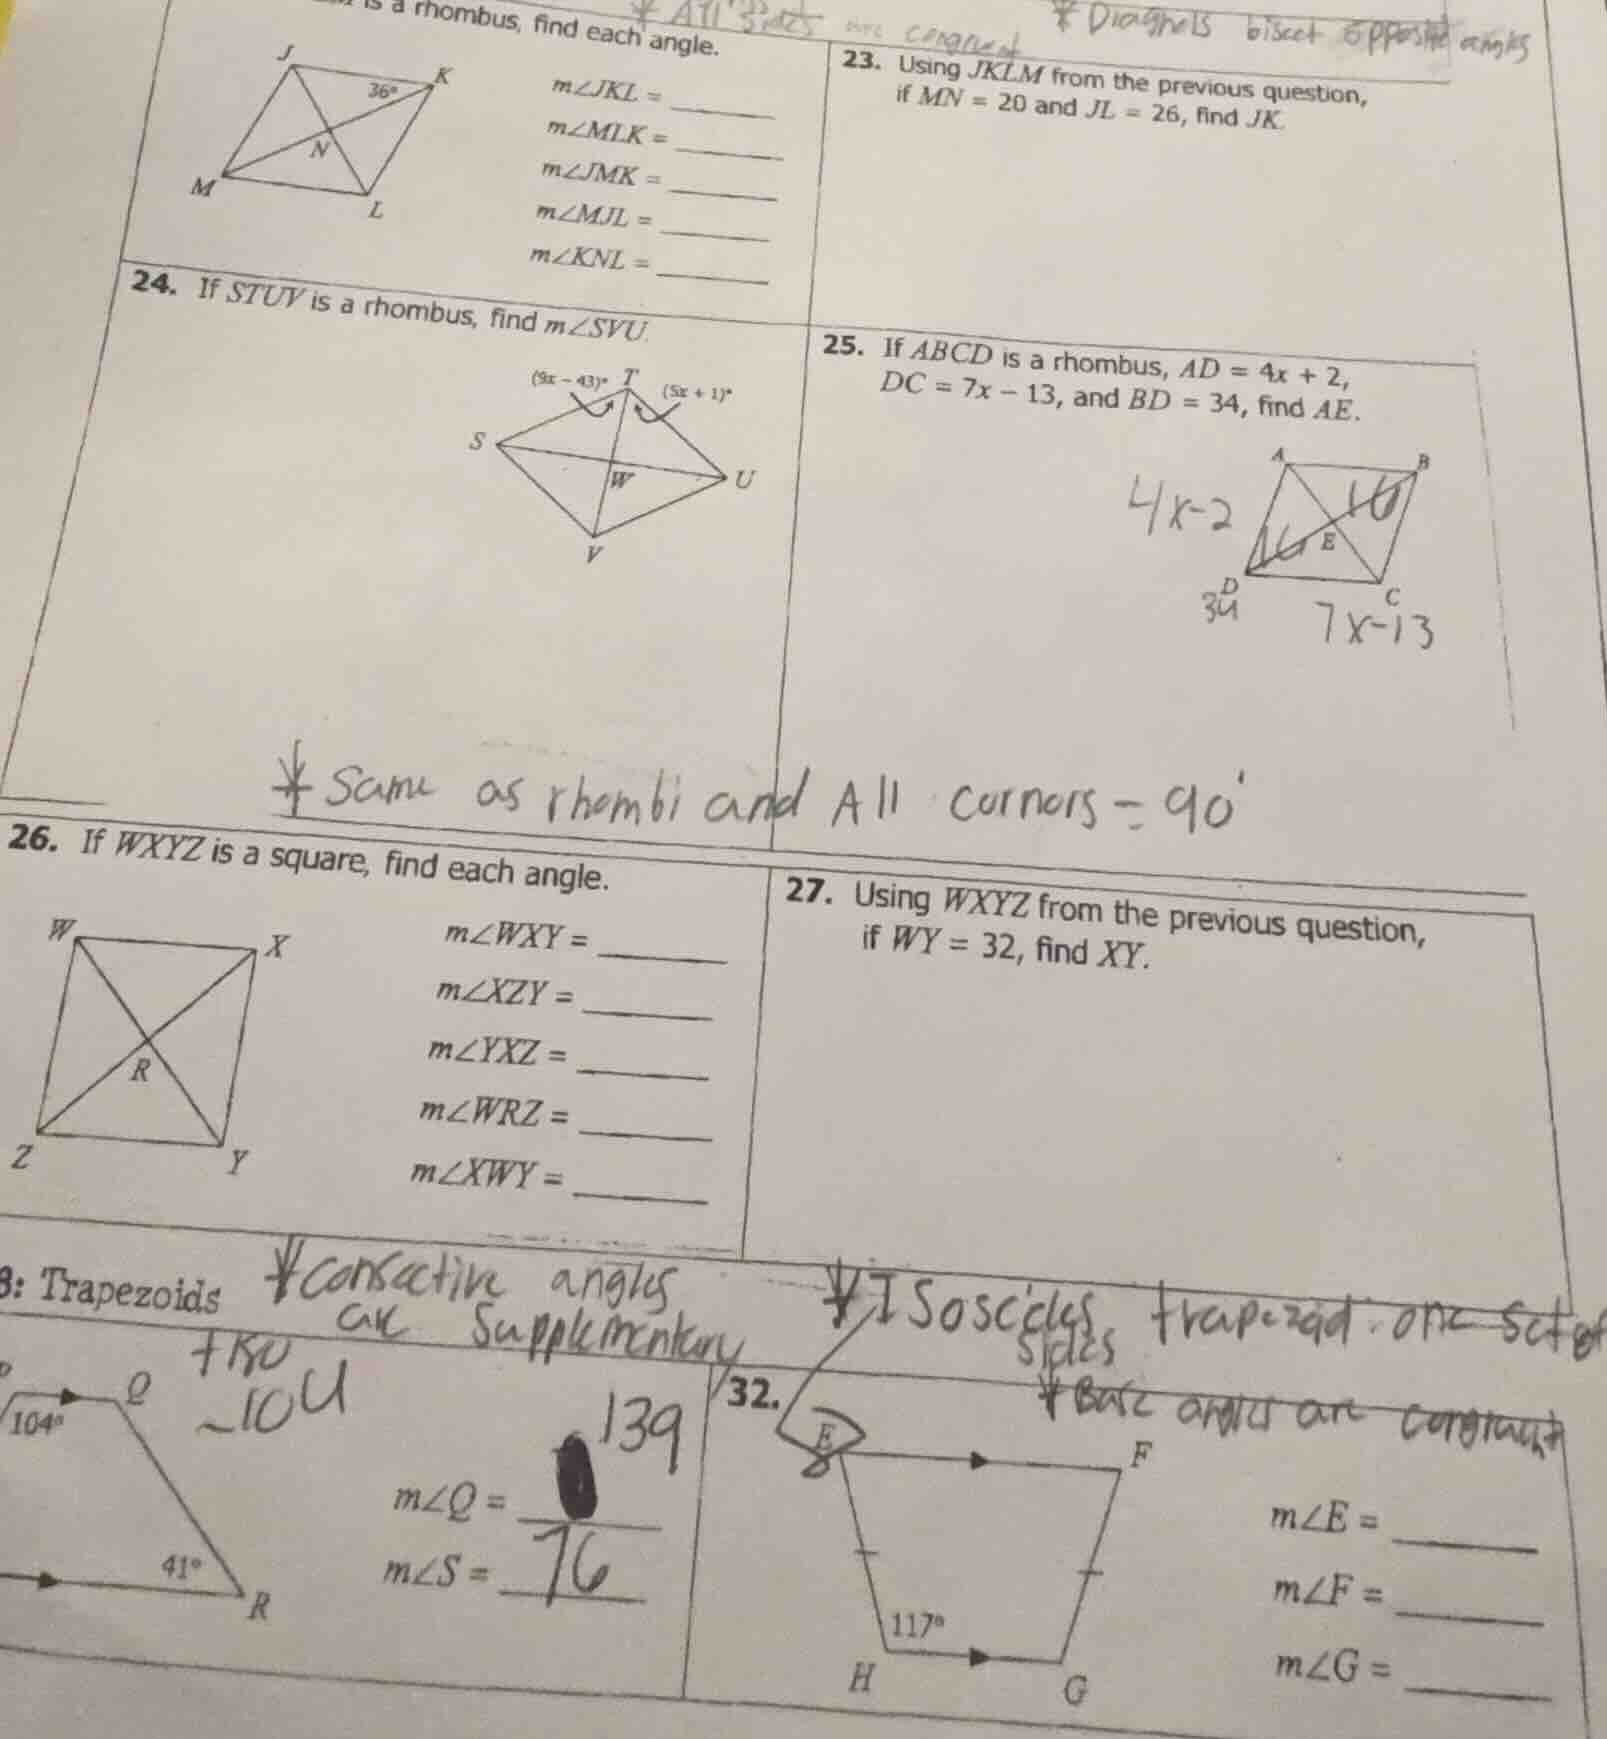 is a rhombus, find each angle.
* All sides are congruent
* Diagnels bisect opposite angles
J
K
36°
N
M
L
m∠JKL =
m∠MLK =
m∠JMK =
m∠MJL =
m∠KNL =
23. Using JKLM from the previous question,
if MN = 20 and JL = 26, find JK.
24. If STUV is a rhombus, find m∠SVU.
(9x − 43)°
T
(5x + 1)°
S
W
U
V
25. If ABCD is a rhombus, AD = 4x + 2,
DC = 7x − 13, and BD = 34, find AE.
A
B
4x-2
16
16
E
D
C
34
7x-13
* Same as rhombi and All corners = 90°
26. If WXYZ is a square, find each angle.
W
X
R
Z
Y
m∠WXY =
m∠XZY =
m∠YXZ =
m∠WRZ =
m∠XWY =
27. Using WXYZ from the previous question,
if WY = 32, find XY.
3: Trapezoids
* consective angles
are supplementary
* Isoscicles trapezoid: one set of
sides
* Base angles are congruent
Q
104°
41°
R
139
m∠Q =
m∠S = 76
32.
E
F
117°
H
G
m∠E =
m∠F =
m∠G =